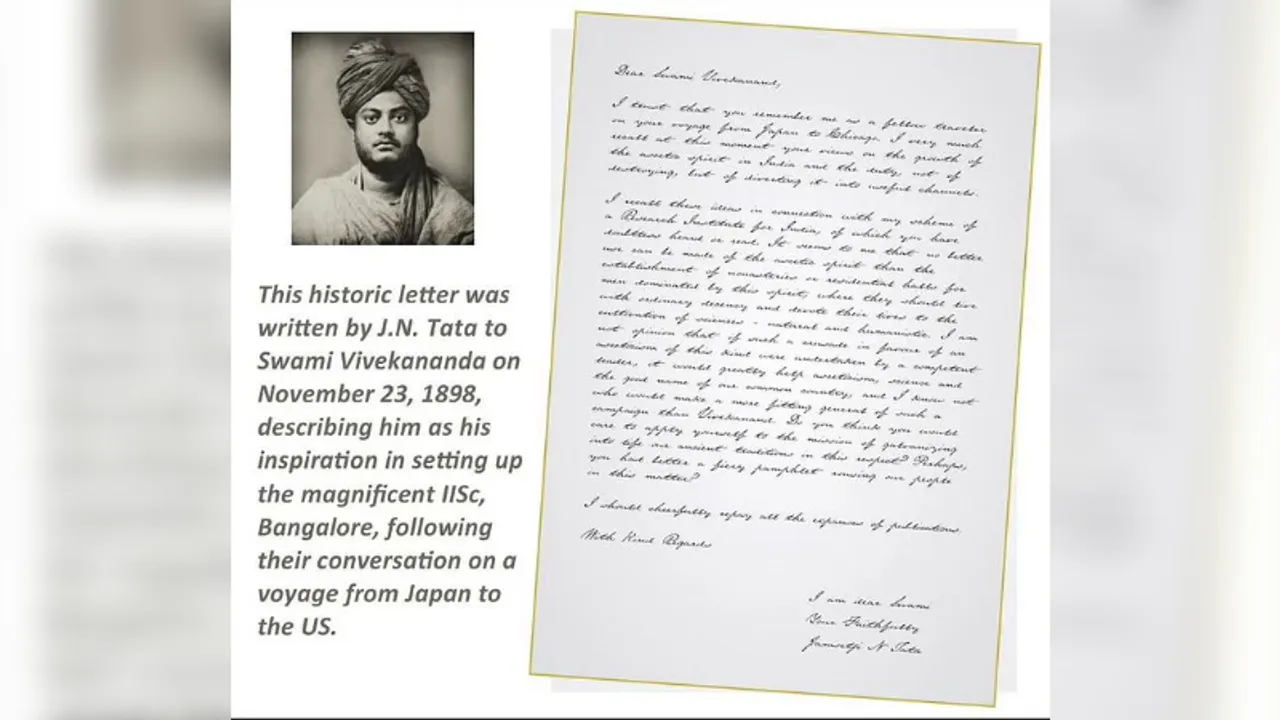 This historic letter was
written by J.N. Tata to
Swami Vivekananda on
November 23, 1898,
describing him as his
inspiration in setting up
the magnificent IISc,
Bangalore, following
their conversation on a
voyage from Japan to
the US.
Dear Swami Vivekanand,
I trust that you remember me as a fellow traveler
on your voyage from Japan to Chicago. I very much
recall at this moment your views on the growth of
the ascetic spirit in India and the duty, not of
destroying, but of diverting it into useful channels.
I recall these ideas in connection with my scheme of
a Research Institute for India, of which you have
doubtless heard or read. It seems to me that no better
use can be made of the ascetic spirit than the
establishment of monasteries or residential halls for
men dominated by this spirit, where they should live
with ordinary decency and devote their lives to the
cultivation of sciences - natural and humanistic. I am
not opinion that of such a crusade in favour of an
asceticism of this kind were undertaken by a competent
leader, it would greatly help asceticism, science and
the good name of our common country, and I know not
who would make a more fitting general of such a
campaign than Vivekanand. Do you think you would
care to apply yourself to the mission of galvanizing
into life our ancient traditions in this respect? Perhaps,
you had better a fiery pamphlet rousing our people
in this matter?
I should cheerfully repay all the expenses of publications.
With Kind Regards
I am dear Swami
Your Faithfully
Jamsetji N Tata